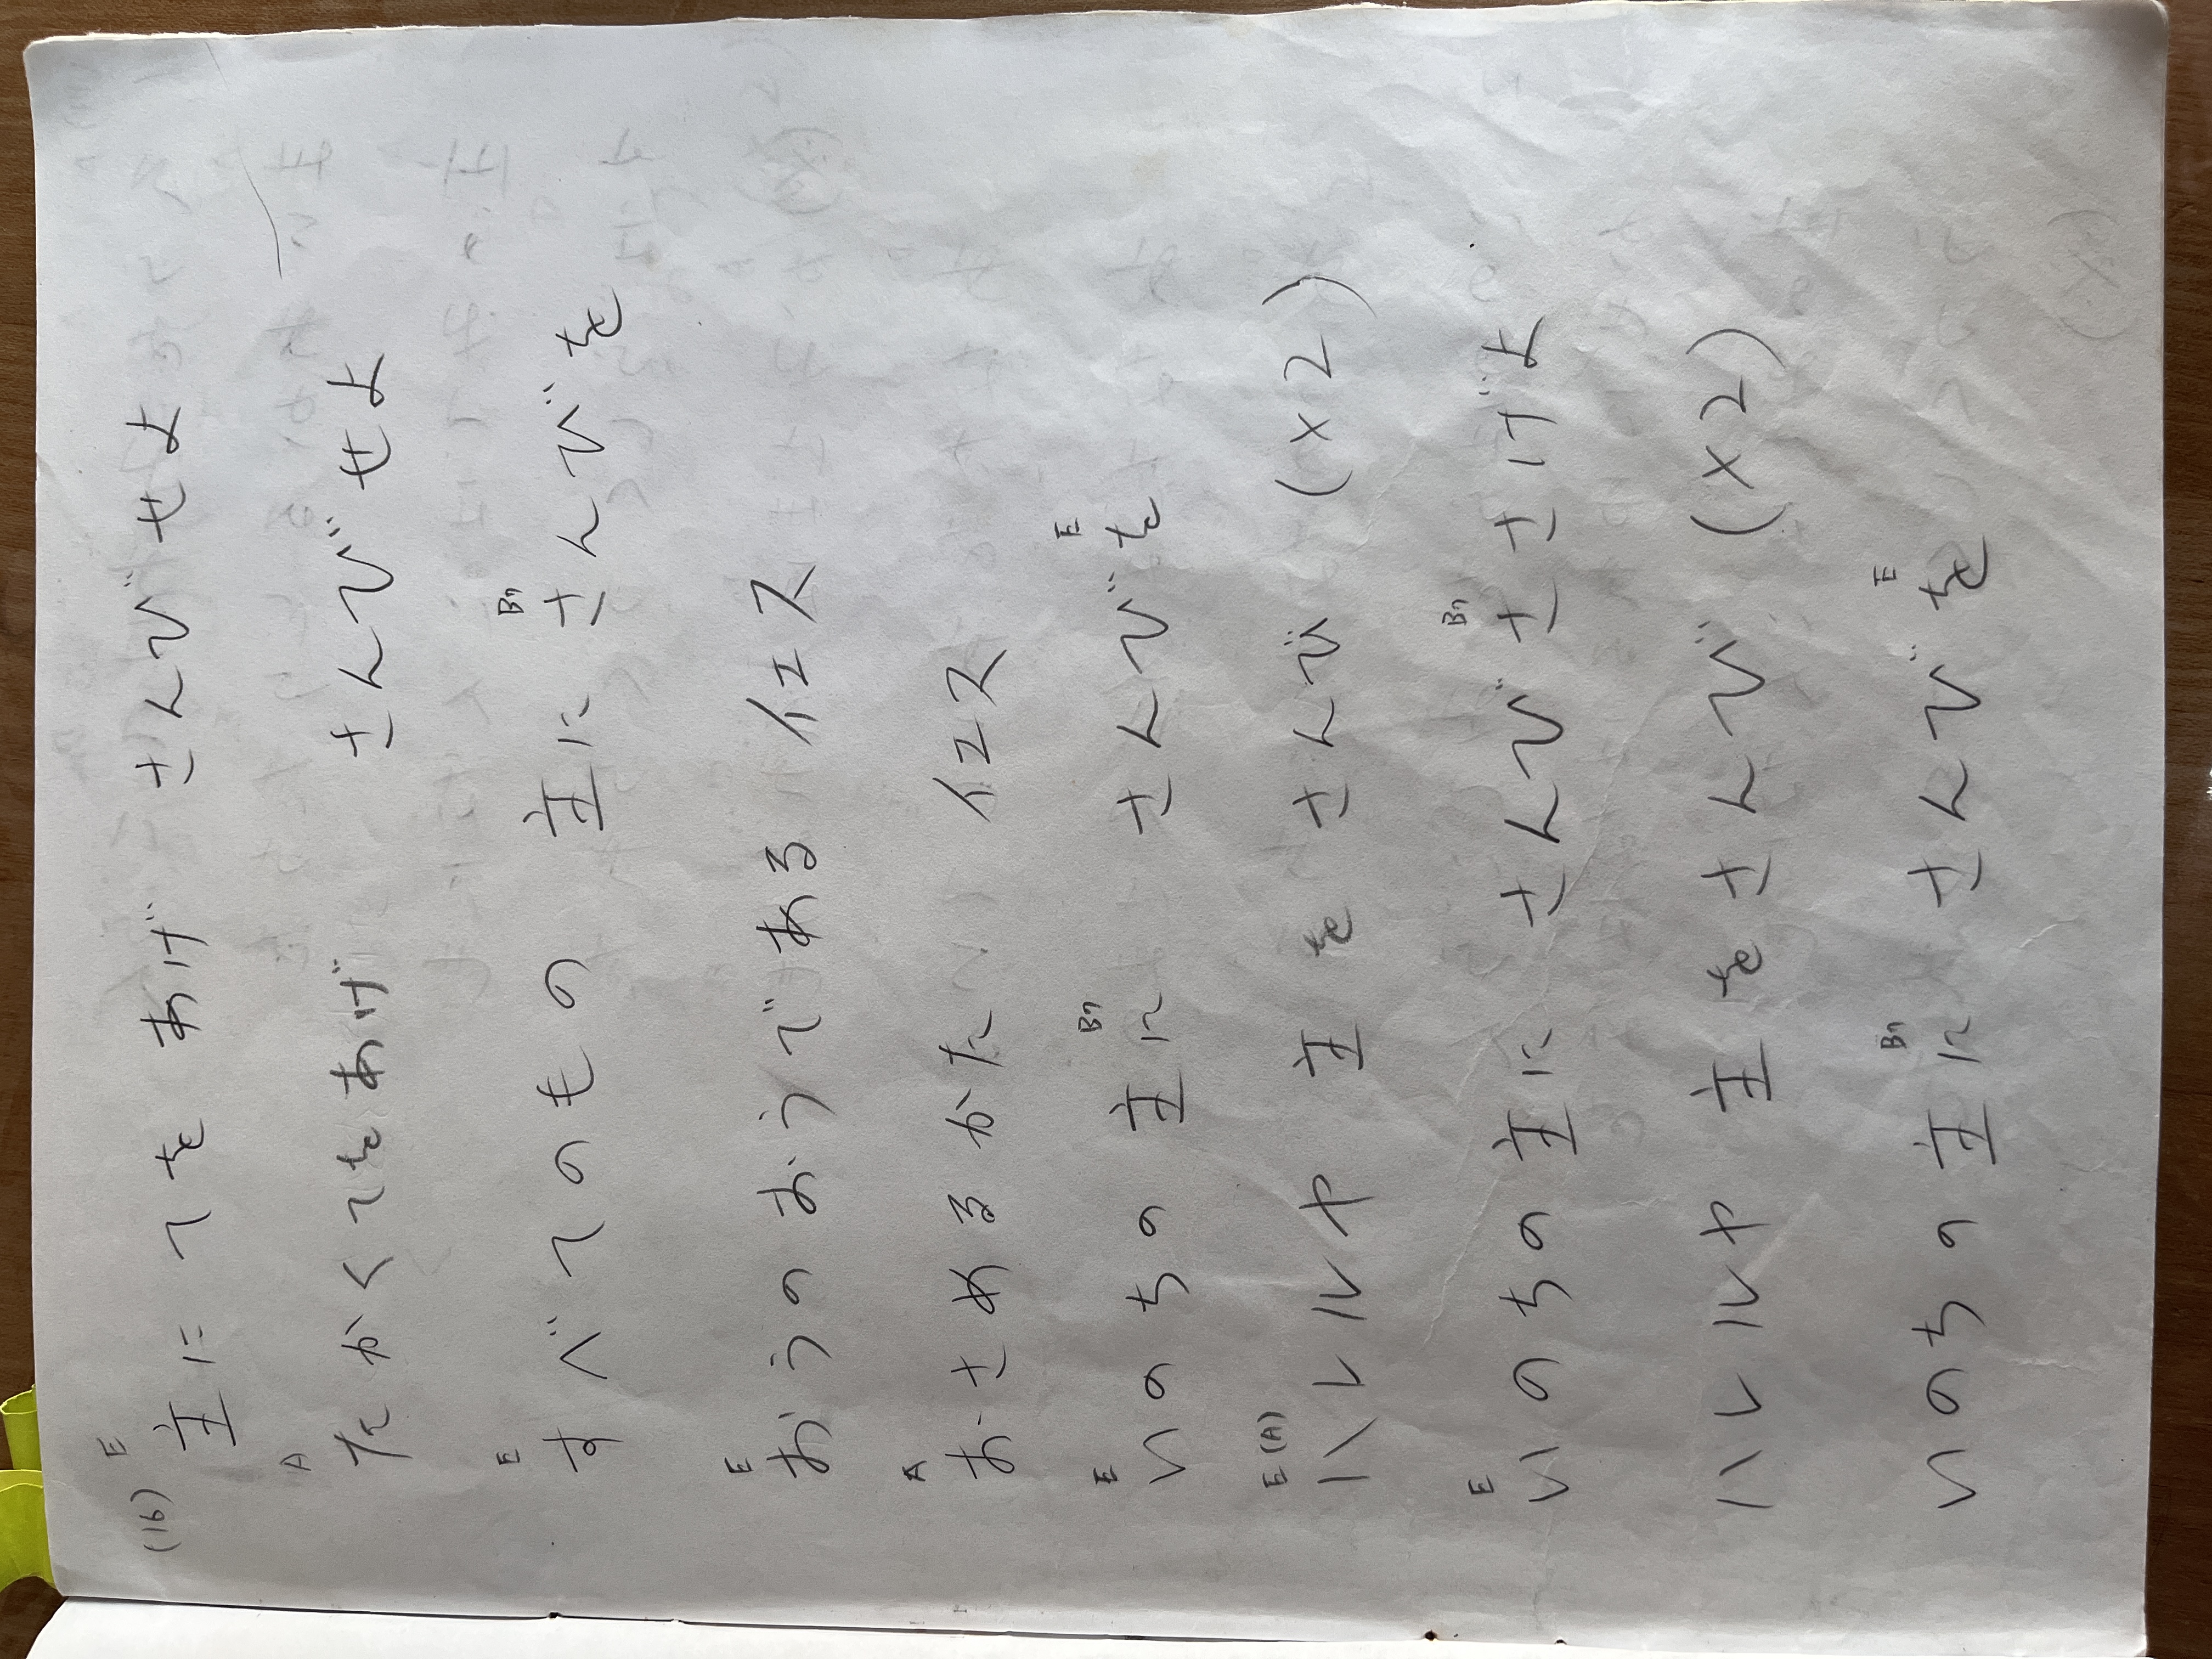 (16) E
主に てを あげ さんび せよ
A
たかく てをあげ さんび せよ
E B7
すべてのもの 主に さんびを
E
おうの おうで ある イエス
A
おさめるかた イエス
E B7 E
いのちの 主に さんびを
E(A)
ハレルヤ 主を さんび (×2)
E B7
いのちの 主に さんび ささげよ
ハレルヤ 主を さんび (×2)
B7 E
いのちの 主に さんびを